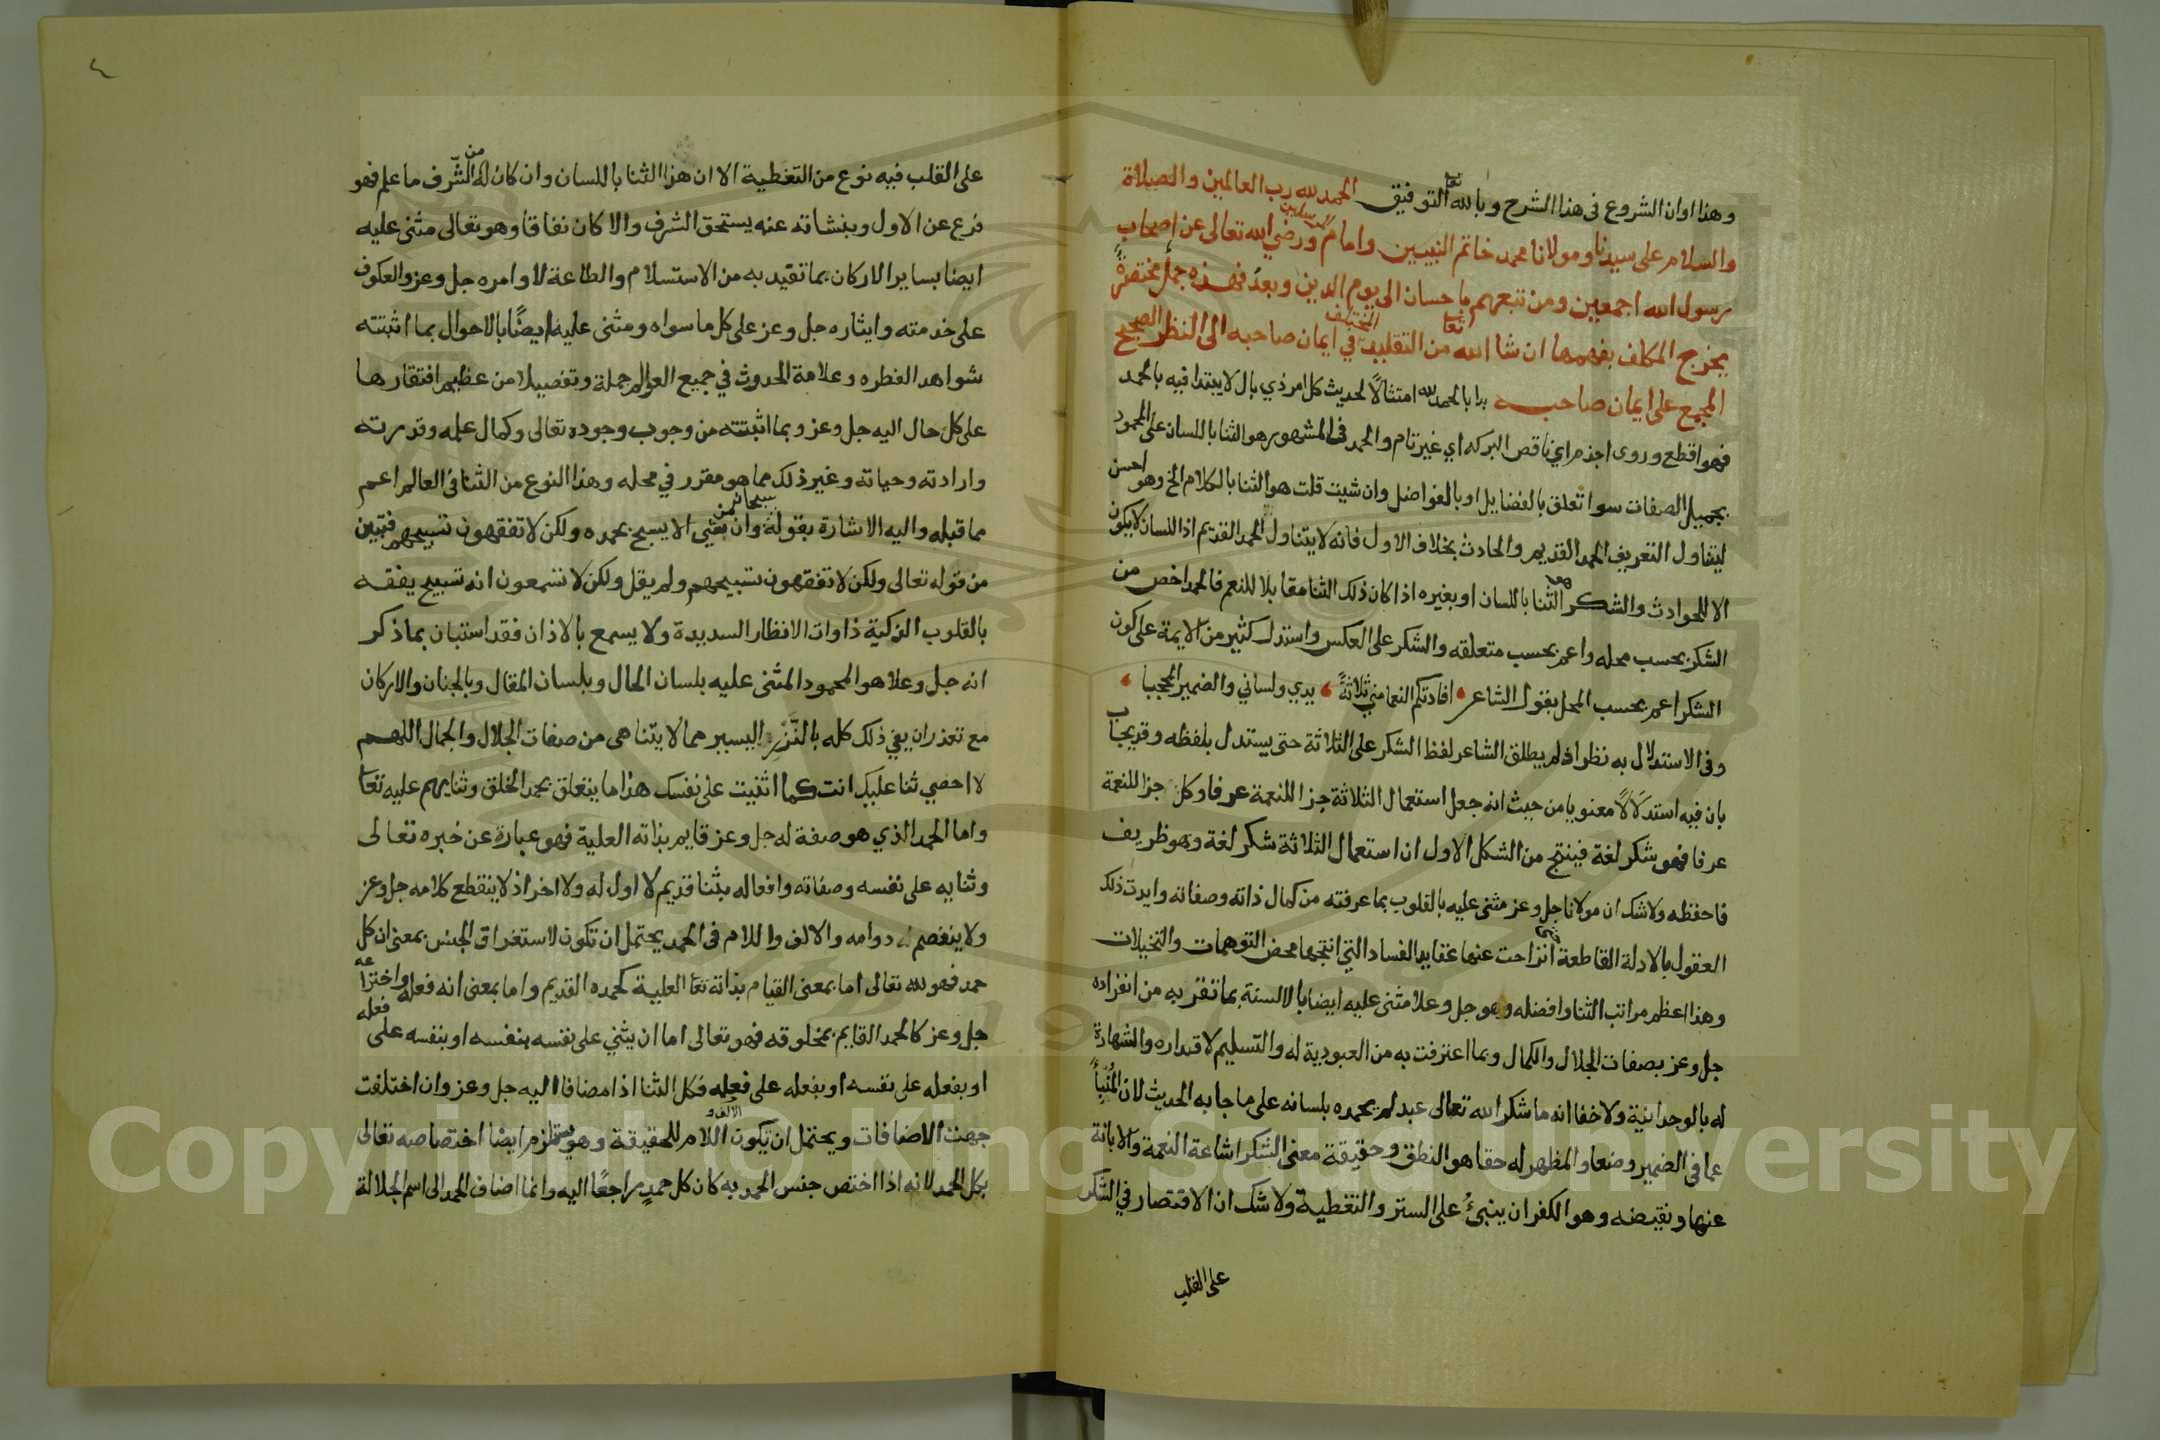 وهذا اوان الشروع فى هذا الشرح وبالله تعا التوفيق الحمد لله رب العالمين والصلاة
والسلام على سيدنا ومولانا محمد خاتم النبيين وامام المرسلين ورضي الله تعالى عن اصحاب
رسول الله اجمعين ومن تبعهم باحسان الى يوم الدين وبعد فهذه جمل مختصرة
يخرج المكلف بفهمها ان شا الله تعا من التقليد المختلف في ايمان صاحبه الى النظر الصحيح
المجمع على ايمان صاحبه بدا بالحمد لله امتثالا لحديث كل امر ذي بال لا يبتدا فيه بالحمد
فهو اقطع وروى اجذم اي ناقص البركه اي غير تام والحمد فى المشهور هو الثنا باللسان على المحمود
بجميل الصفات سوا تعلق بالفضايل او بالفواضل وان شيت قلت هو الثنا بالكلام الخ وهو احسن
ليتناول التعريف الحمد القديم والحادث بخلاف الاول فانه لا يتناول الحمد القديم اذ اللسان لا يكون
الا للحوادث والشكر هو الثنا باللسان او بغيره اذا كان ذلك الثنا مقابلا للنعم فالحمد اخص من
الشكر بحسب محله واعم بحسب متعلقه والشكر على العكس واستدل كثير من الايمة على كون
الشكر اعم بحسب المحل بقول الشاعر افادتكم النعما مني ثلاثة يدي ولساني والضمير المحجبا
وفى الاستدلال به نظر اذ لم يطلق الشاعر لفظ الشكر على الثلاثة حتى يستدل بلفظه وقد يجاب
بان فيه استدلالا معنويا من حيث انه جعل استعمال الثلاثة جزا للنعمة عرفا وكل جزا للنعمة
عرفا فهو شكر لغة فينتج من الشكل الاول ان استعمال الثلاثة شكر لغة وهو ظريف
فاحفظه ولا شك ان مولانا جل وعز مثنى عليه بالقلوب بما عرفته من كمال ذاته وصفاته وايدت ذلك
العقول بالادلة القاطعة انزاحت عنها عقايد الفساد التي انتجها محض التوهمات والتخيلات
وهذا اعظم مراتب الثنا وافضله وهو جل وعلا مثنى عليه ايضا بالالسنة بما تقر به من انفراده
جل وعز بصفات الجلال والكمال وبما اعترفت به من العبودية له والتسليم لاقداره والشهادة
له بالوحدانية ولا خفا انه ما شكر الله تعالى عبد لم يحمده بلسانه على ما جا به الحديث لان المنبأ
عما فى الضمير وضعا والمظهر له حقا هو النطق وحقيقة معنى الشكر اشاعة النعمة والابانة
عنها ونقيضه وهو الكفران ينبئ على الستر والتغطية ولا شك ان الاقتصار في الشكر
على القلب
على القلب فيه نوع من التغطية الا ان هذا الثنا باللسان وان كان له من الشرف ما علم فهو
فرع عن الاول وبنشاته عنه يستحق الشرف والا كان نفاقا وهو تعالى مثنى عليه
ايضا بساير الاركان بما تقيد به من الاستسلام والطاعة لاوامره جل وعز والعكوف
على خدمته وايثاره جل وعز على كل ما سواه ومثنى عليه ايضا بالاحوال بما اثبتته
شواهد الفطره وعلامة الحدوث في جميع العوالم جملة وتفصيلا من عظيم افتقارها
على كل حال اليه جل وعز وبما اثبتته من وجوب وجوده تعالى وكمال علمه وقدرته
وارادته وحياته وغير ذلك مما هو مقرر في محله وهذا النوع من الثنا فى العالم اعم
مما قبله واليه الاشارة بقوله سبحانه وان من شي الا يسبح بحمده ولكن لا تفقهون تسبيحهم فتبين
من قوله تعالى ولكن لا تفقهون تسبيحهم ولم يقل ولكن لا تسمعون انه تسبيح يفقه
بالقلوب الزكية ذاوات الانظار السديدة ولا يسمع بالاذان فقد استبان بما ذكر
انه جل وعلا هو المحمود المثنى عليه بلسان الحال وبلسان المقال وبالجنان والاركان
مع تعذر ان يفي ذلك كله بالنزر اليسير مما لا يتناهى من صفات الجلال والجمال اللهم
لا احصي ثنا عليك انت كما اثنيت على نفسك هذا ما يتعلق بحمد الخلق وثنايهم عليه تعا
واما الحمد الذي هو صفة له جل وعز قايم بذاته العلية فهو عبارة عن خبره تعالى
وثنايه على نفسه وصفاته وافعاله بثنا قديم لا اول له ولا اخر اذ لا ينقطع كلامه جل وعز
ولا ينفصم له دوامه والالف واللام فى الحمد يحتمل ان تكون لاستغراق الجنس بمعنى ان كل
حمد فهو لله تعالى اما بمعنى القيام بذاته تعا العلية كحمده القديم واما بمعنى انه فعله واختراعه
جل وعز كالحمد القايم بمخلوقه فهو تعالى اما ان يثني على نفسه بنفسه او بنفسه على فعله
او بفعله على نفسه او بفعله على فعله فكل الثنا اذا مضافا اليه جل وعز وان اختلفت
جهت الاضافات ويحتمل ان تكون الالف و اللام للحقيقة وهو يستلزم ايضا اختصاصه تعالى
بكل الحمد لانه اذا اختص جنس الحمد به كان كل حمد راجعا اليه وانما اضاف الحمد الى اسم الجلالة
Copyright © King Saud University